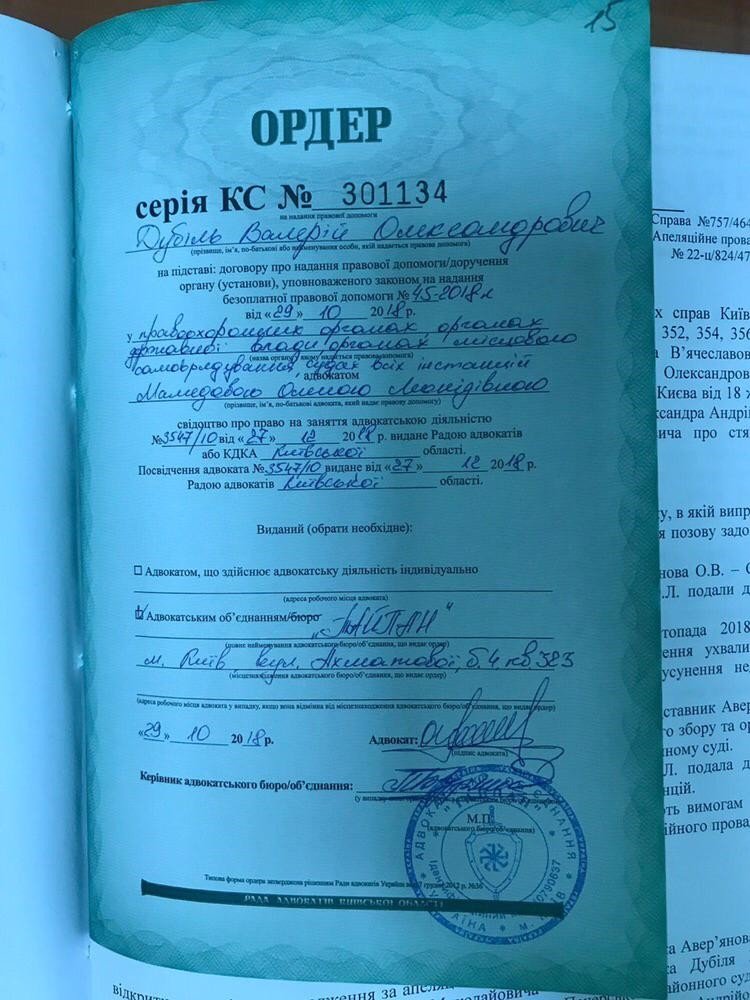 15
ОРДЕР
серія КС № 301134
на надання правової допомоги
Дубіль Валерій Олександрович
(прізвище, ім’я, по-батькові або найменування особи, якій надається правова допомога)
на підставі: договору про надання правової допомоги/доручення
органу (установи), уповноваженого законом на надання
безоплатної правової допомоги № 45-2018
від «29» 10 2018 р.
у правоохоронних органах, органах
державної влади, органах місцевого
(назва органу, у якому надається правова допомога)
самоврядування, судах всіх інстанцій
адвокатом
Мамедовою Оленою Леонідівною
(прізвище, ім’я, по-батькові адвоката, який надає правову допомогу)
свідоцтво про право на заняття адвокатською діяльністю
№3547/10 від «27» 12 2018 р. видане Радою адвокатів
або КДКА Київської області.
Посвідчення адвоката №3547/10 видане від «27» 12 2018 р.
Радою адвокатів Київської області.
Виданий (обрати необхідне):
Адвокатом, що здійснює адвокатську діяльність індивідуально
(адреса робочого місця адвоката)
Адвокатським об’єднанням/бюро
„ТАЙПАН“
(повне найменування адвокатського бюро/об’єднання, що видає ордер)
м. Київ, вул. Ахматової, б. 4 кв 323
(місцезнаходження адвокатського бюро/об’єднання, що видає ордер)
(адреса робочого місця адвоката у випадку, якщо вона відмінна від місцезнаходження адвокатського бюро/об’єднання, що видає ордер)
«29» 10 2018 р. Адвокат:
(підпис адвоката)
Керівник адвокатського бюро/об’єднання:
М.П.
(адвокатського бюро/об’єднання)
Типова форма ордера затверджена рішенням Ради адвокатів України від 17 грудня 2012 р. №36
РАДА АДВОКАТІВ КИЇВСЬКОЇ ОБЛАСТІ
Справа №757/464
Апеляційне прова
№ 22-ц/824/47
х справ Київ
352, 354, 356
В’ячеславов
Олександров
Києва від 18 ж
ксандра Андрій
вича про стя
у, в якій випр
я позову задо
нова О.В. – С
.Л. подали д
топада 2018
ення ухвали
усунення не
ставник Авер
го збору та ор
ному суді.
Л. подала д
нцій.
ють вимогам
ційного прова
та Авер’янова
Дубіля
районного суд